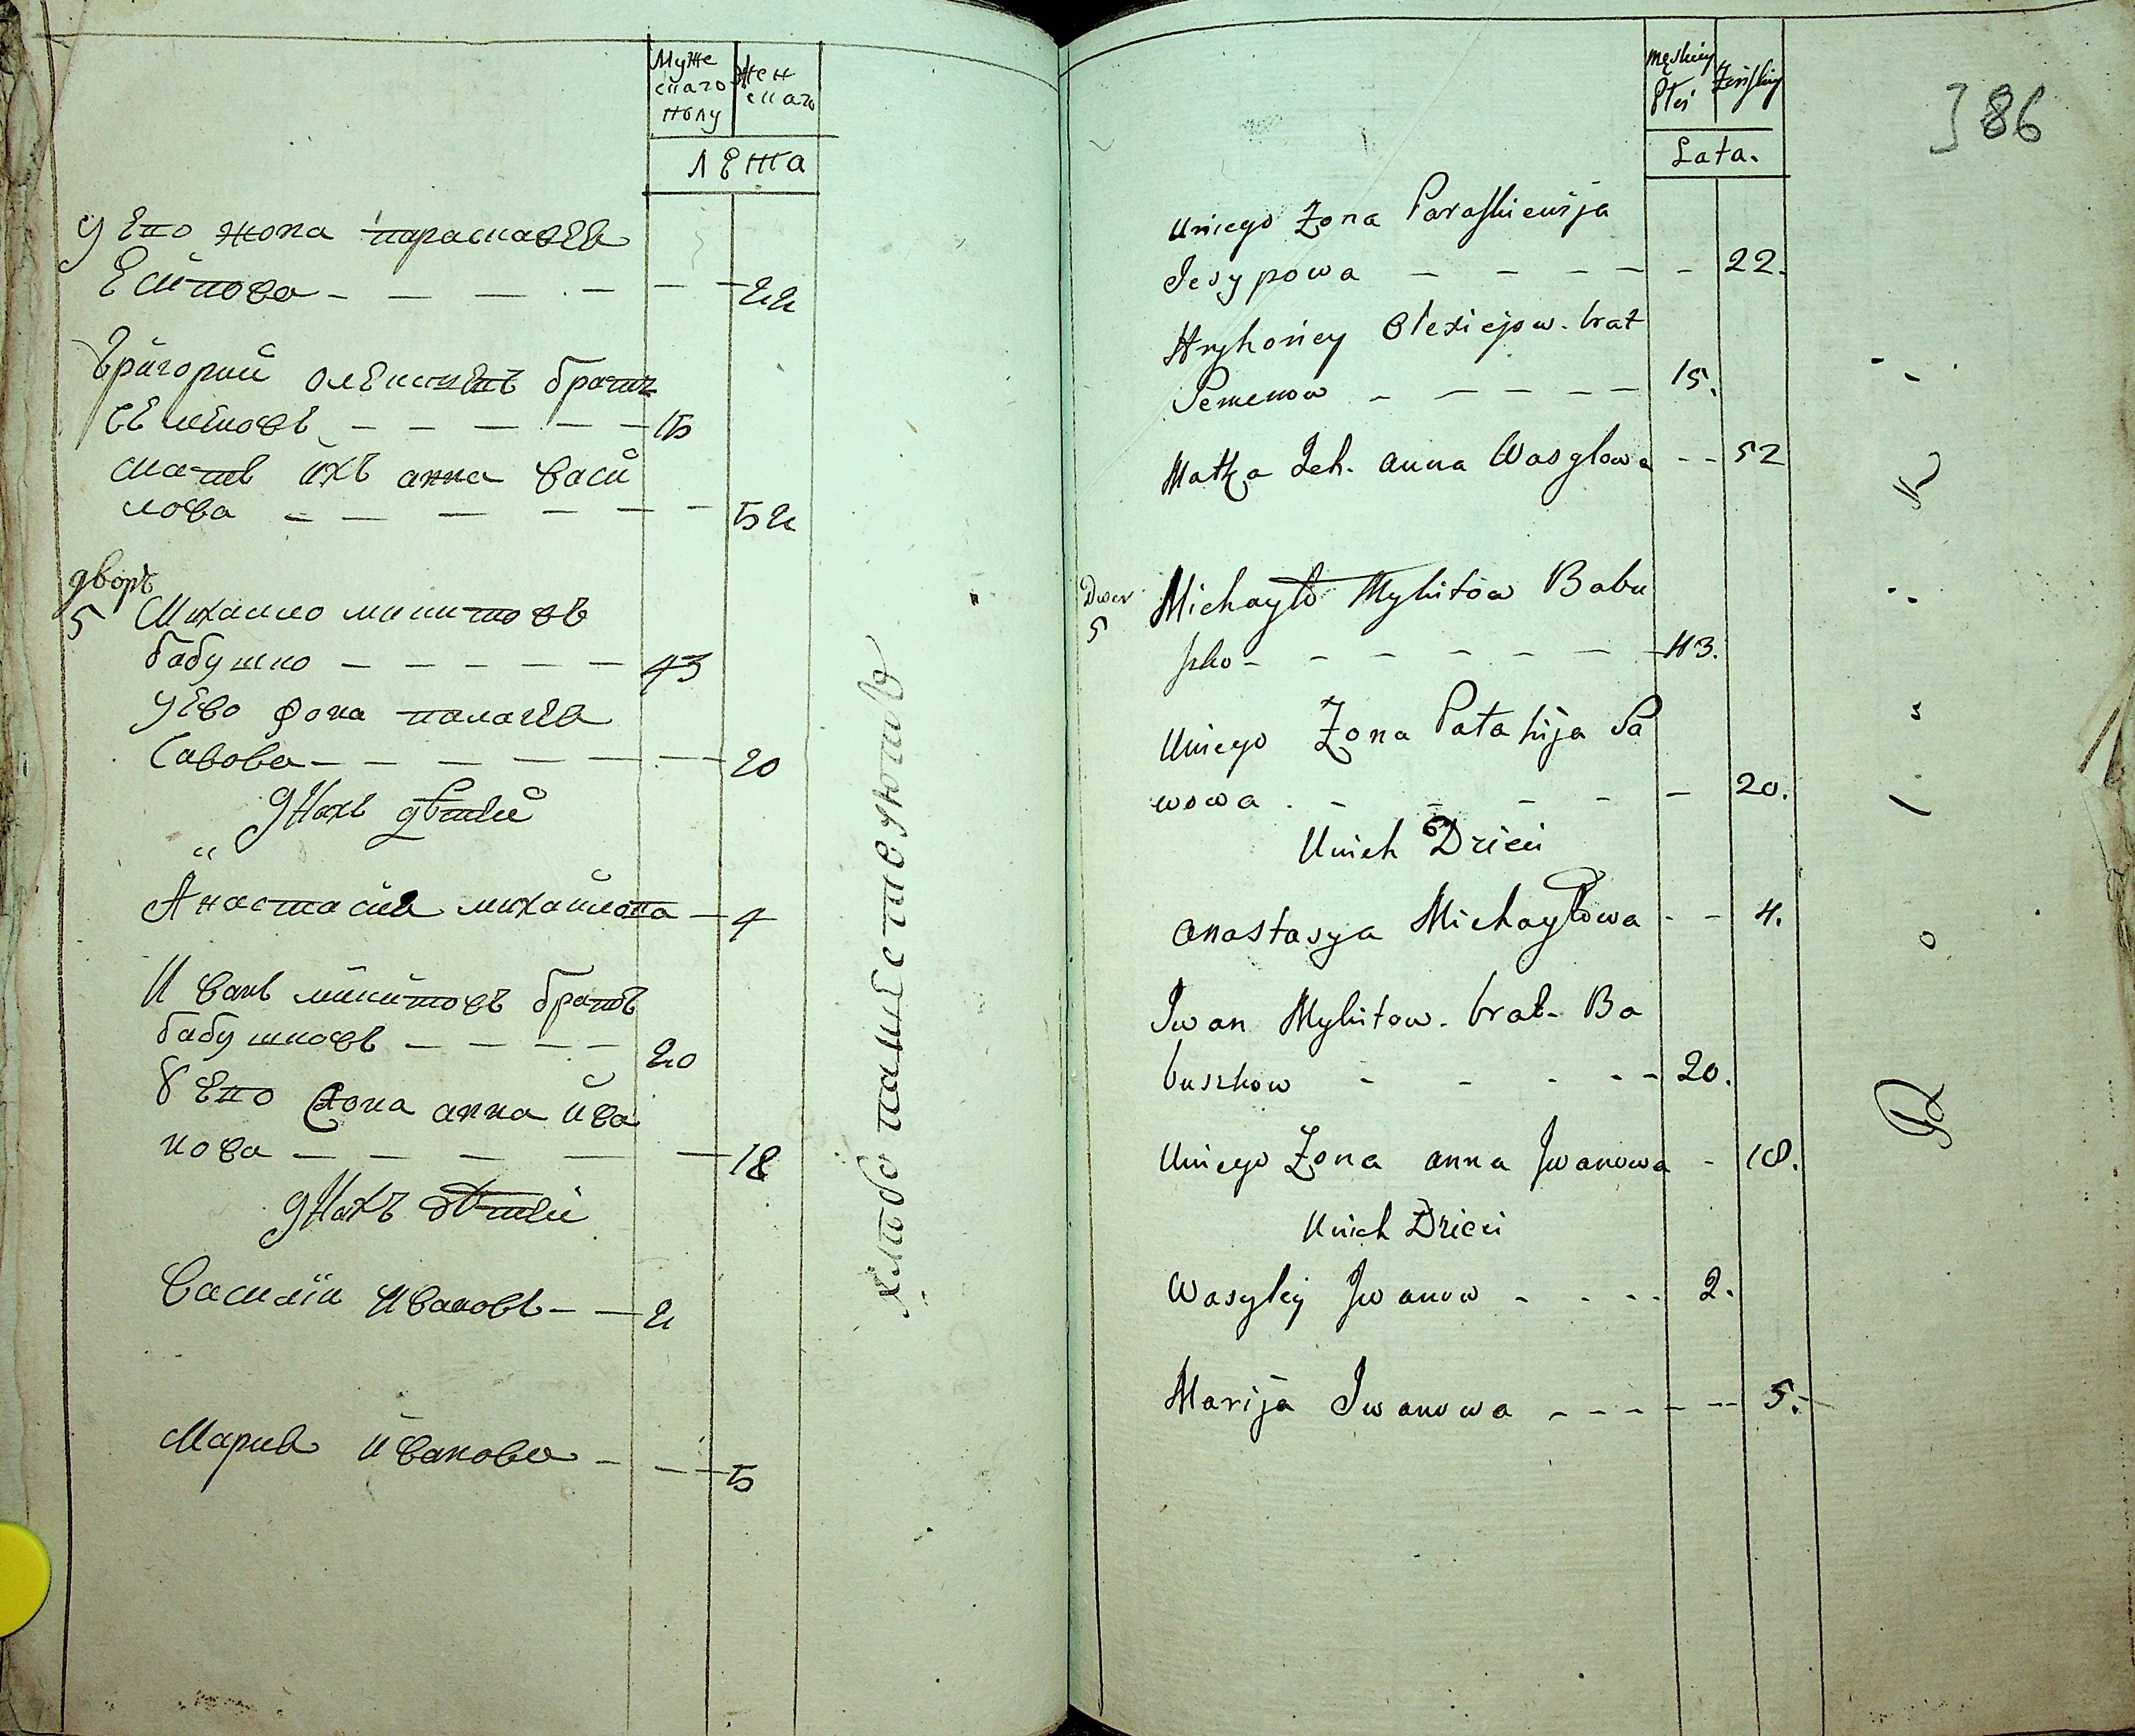 Муже
скаго
полу
Жен
скаго
Лета
у Его жона параскавея
Есипова 22
Григорий олексиевъ братъ
семеновъ 15
мать ихъ анна Васи
лова 52
дворъ
5 Михаило микитовъ
бабушко 43
у Ево жона палагея
Савова 20
у Нихъ дети
Анастасия михаилова 4
Иванъ микитовъ братъ
бабушковъ 20
у Его жона анна ива
нова 18
у Нихъ дети
Василий Ивановъ 2
Мария Иванова 5
хлебопашествуютъ
męskiey
Płci
Żeńskiey
Lata.
386
Uniego Żona Paraskiewija
Jesypowa 22.
Hryhoriey Olexiejow. brat
Semenow 15.
Matka Ich. anna Wasylowa 52
Dwor
5
Michayło Mykitow Babu
szko 43.
Uniego Żona Pałahija Sa
wowa 20.
Unich Dzieci
anastasya Michayłowa 4.
Iwan Mykitow. brat. Ba
buszkow 20.
Uniego Żona anna Iwanowa 18.
Unich Dzieci
Wasyley Iwanow 2.
Marija Iwanowa 5.